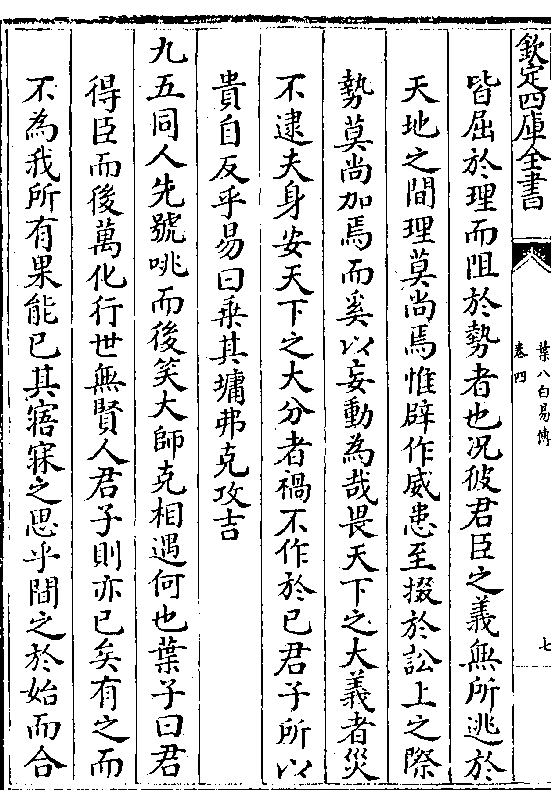 欽定四庫全書
葉八白易傳
卷四
七
皆屈於理而阻於勢者也况彼君臣之義無所逃於
天地之間理莫尚焉惟辟作威患至掇於訟上之際
勢莫尚加焉而奚以妄動為哉畏天下之大義者災
不逮夫身安天下之大分者禍不作於已君子所以
貴自反乎易曰乗其墉弗克攻吉
九五同人先號咷而後笑大師克相遇何也葉子曰君
得臣而後萬化行世無賢人君子則亦已矣有之而
不為我所有果能已其寤寐之思乎間之於始而合